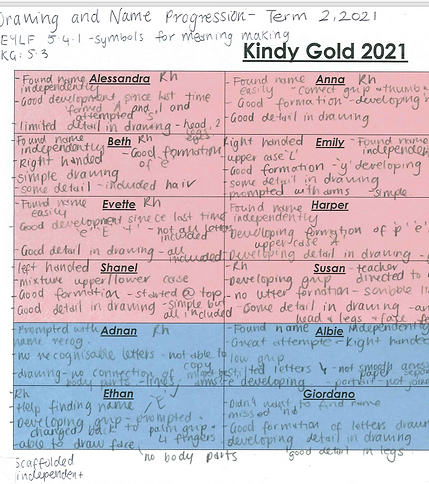 Drawing and Name Progression- Term 2, 2021
EYLF 5.4.1 -symbols for meaning making
KG: 5.3
Kindy Gold 2021
Alessandra Rh
- Found name independently
- Good development since last time
formed A and and
attempted 's'
limited detail in drawing - head, 2 legs
Anna Rh
- Found name easily - correct grip
- Good formation - developing
- Good detail in drawing
Beth Rh
- Found name independently
- Good formation of e
- Right handed
- simple drawing
- some detail - included hair
Emily
- Found name
Right handed
upper case 'L'
Good formation - 'y' developing
some detail in drawing
prompted with arms - simple
Evette Rh
- Found name easily
- Good development since last time
'e' 'E' 't' - not all letters included
- Good detail in drawing - all included
Harper
Found name independently
Developing formation of 'p' 'e'
upper case A
Developing detail in drawing
Shanel
left handed
- mixture upper/lower case
- Good formation - started @ top
- Good detail in drawing simple but all included
Susan - teacher directed to
- Rh
- Developing grip
- no letter formation - scribble
- Some detail in drawing
head & legs
Adnan Rh
- Prompted with name recog.
- no recognisable letters - not able to copy
- drawing - no connection of
body parts - lines
Albie
- Found name independently
- Great attempt - Right handed
low grip
letters - not smooth
developing - portrait - not
Ethan
Rh
- Help finding name 'E'
- Developing grip - prompted
changed back to palm grip
- able to draw face 4 fingers
no body parts
Giordano
- Didn't want to find name
- missed
- Good formation of letters
- developing detail in drawing
good detail in legs
Scaffolded
independent